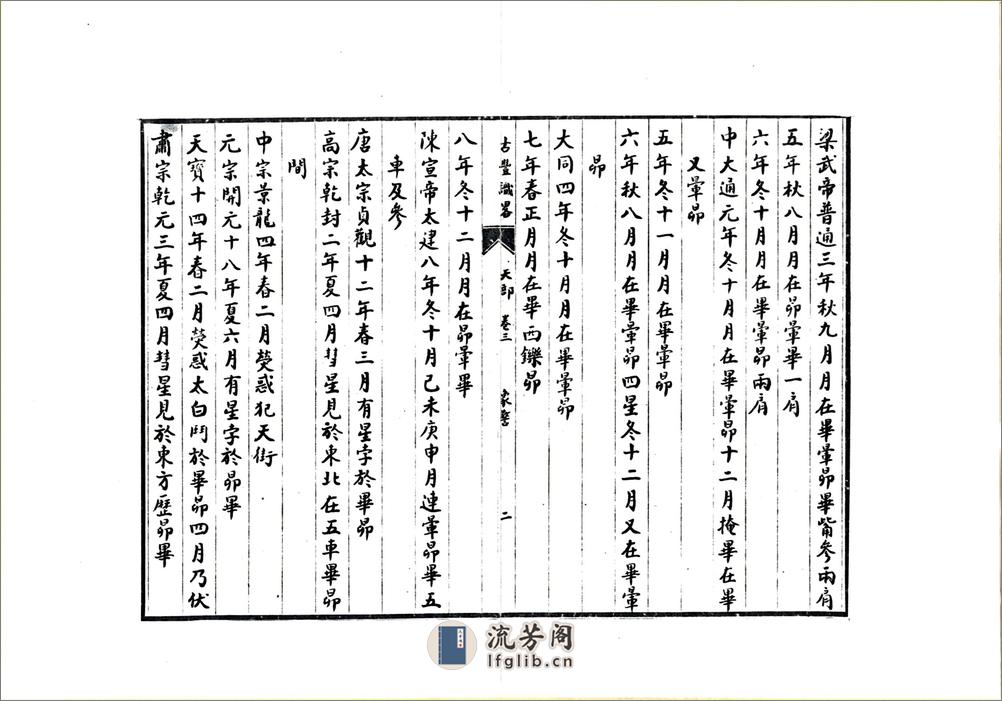 梁武帝普通三年秋九月月在畢暈昴畢觜參兩肩
五年秋八月月在昴暈畢一肩
六年冬十月月在畢暈昴兩肩
中大通元年冬十月月在畢暈昴十二月掩畢在畢
又暈昴
五年冬十一月月在畢暈昴
六年秋八月月在畢暈昴四星冬十二月又在畢暈
昴
大同四年冬十月月在畢暈昴
七年春正月月在畢西鑠昴
古豐識畧 天部 卷三 象警 二
八年冬十二月月在昴暈畢
陳宣帝太建八年冬十月己未庚申月連暈昴畢五
車及參
唐太宗貞觀十二年春三月有星孛於畢昴
高宗乾封二年夏四月彗星見於東北在五車畢昴
間
中宗景龍四年春二月熒惑犯天街
元宗開元十八年夏六月有星孛於昴畢
天寶十四年春二月熒惑太白鬥於畢昴四月乃伏
肅宗乾元三年夏四月彗星見於東方歷昴畢
流芳阁
lfglib.cn